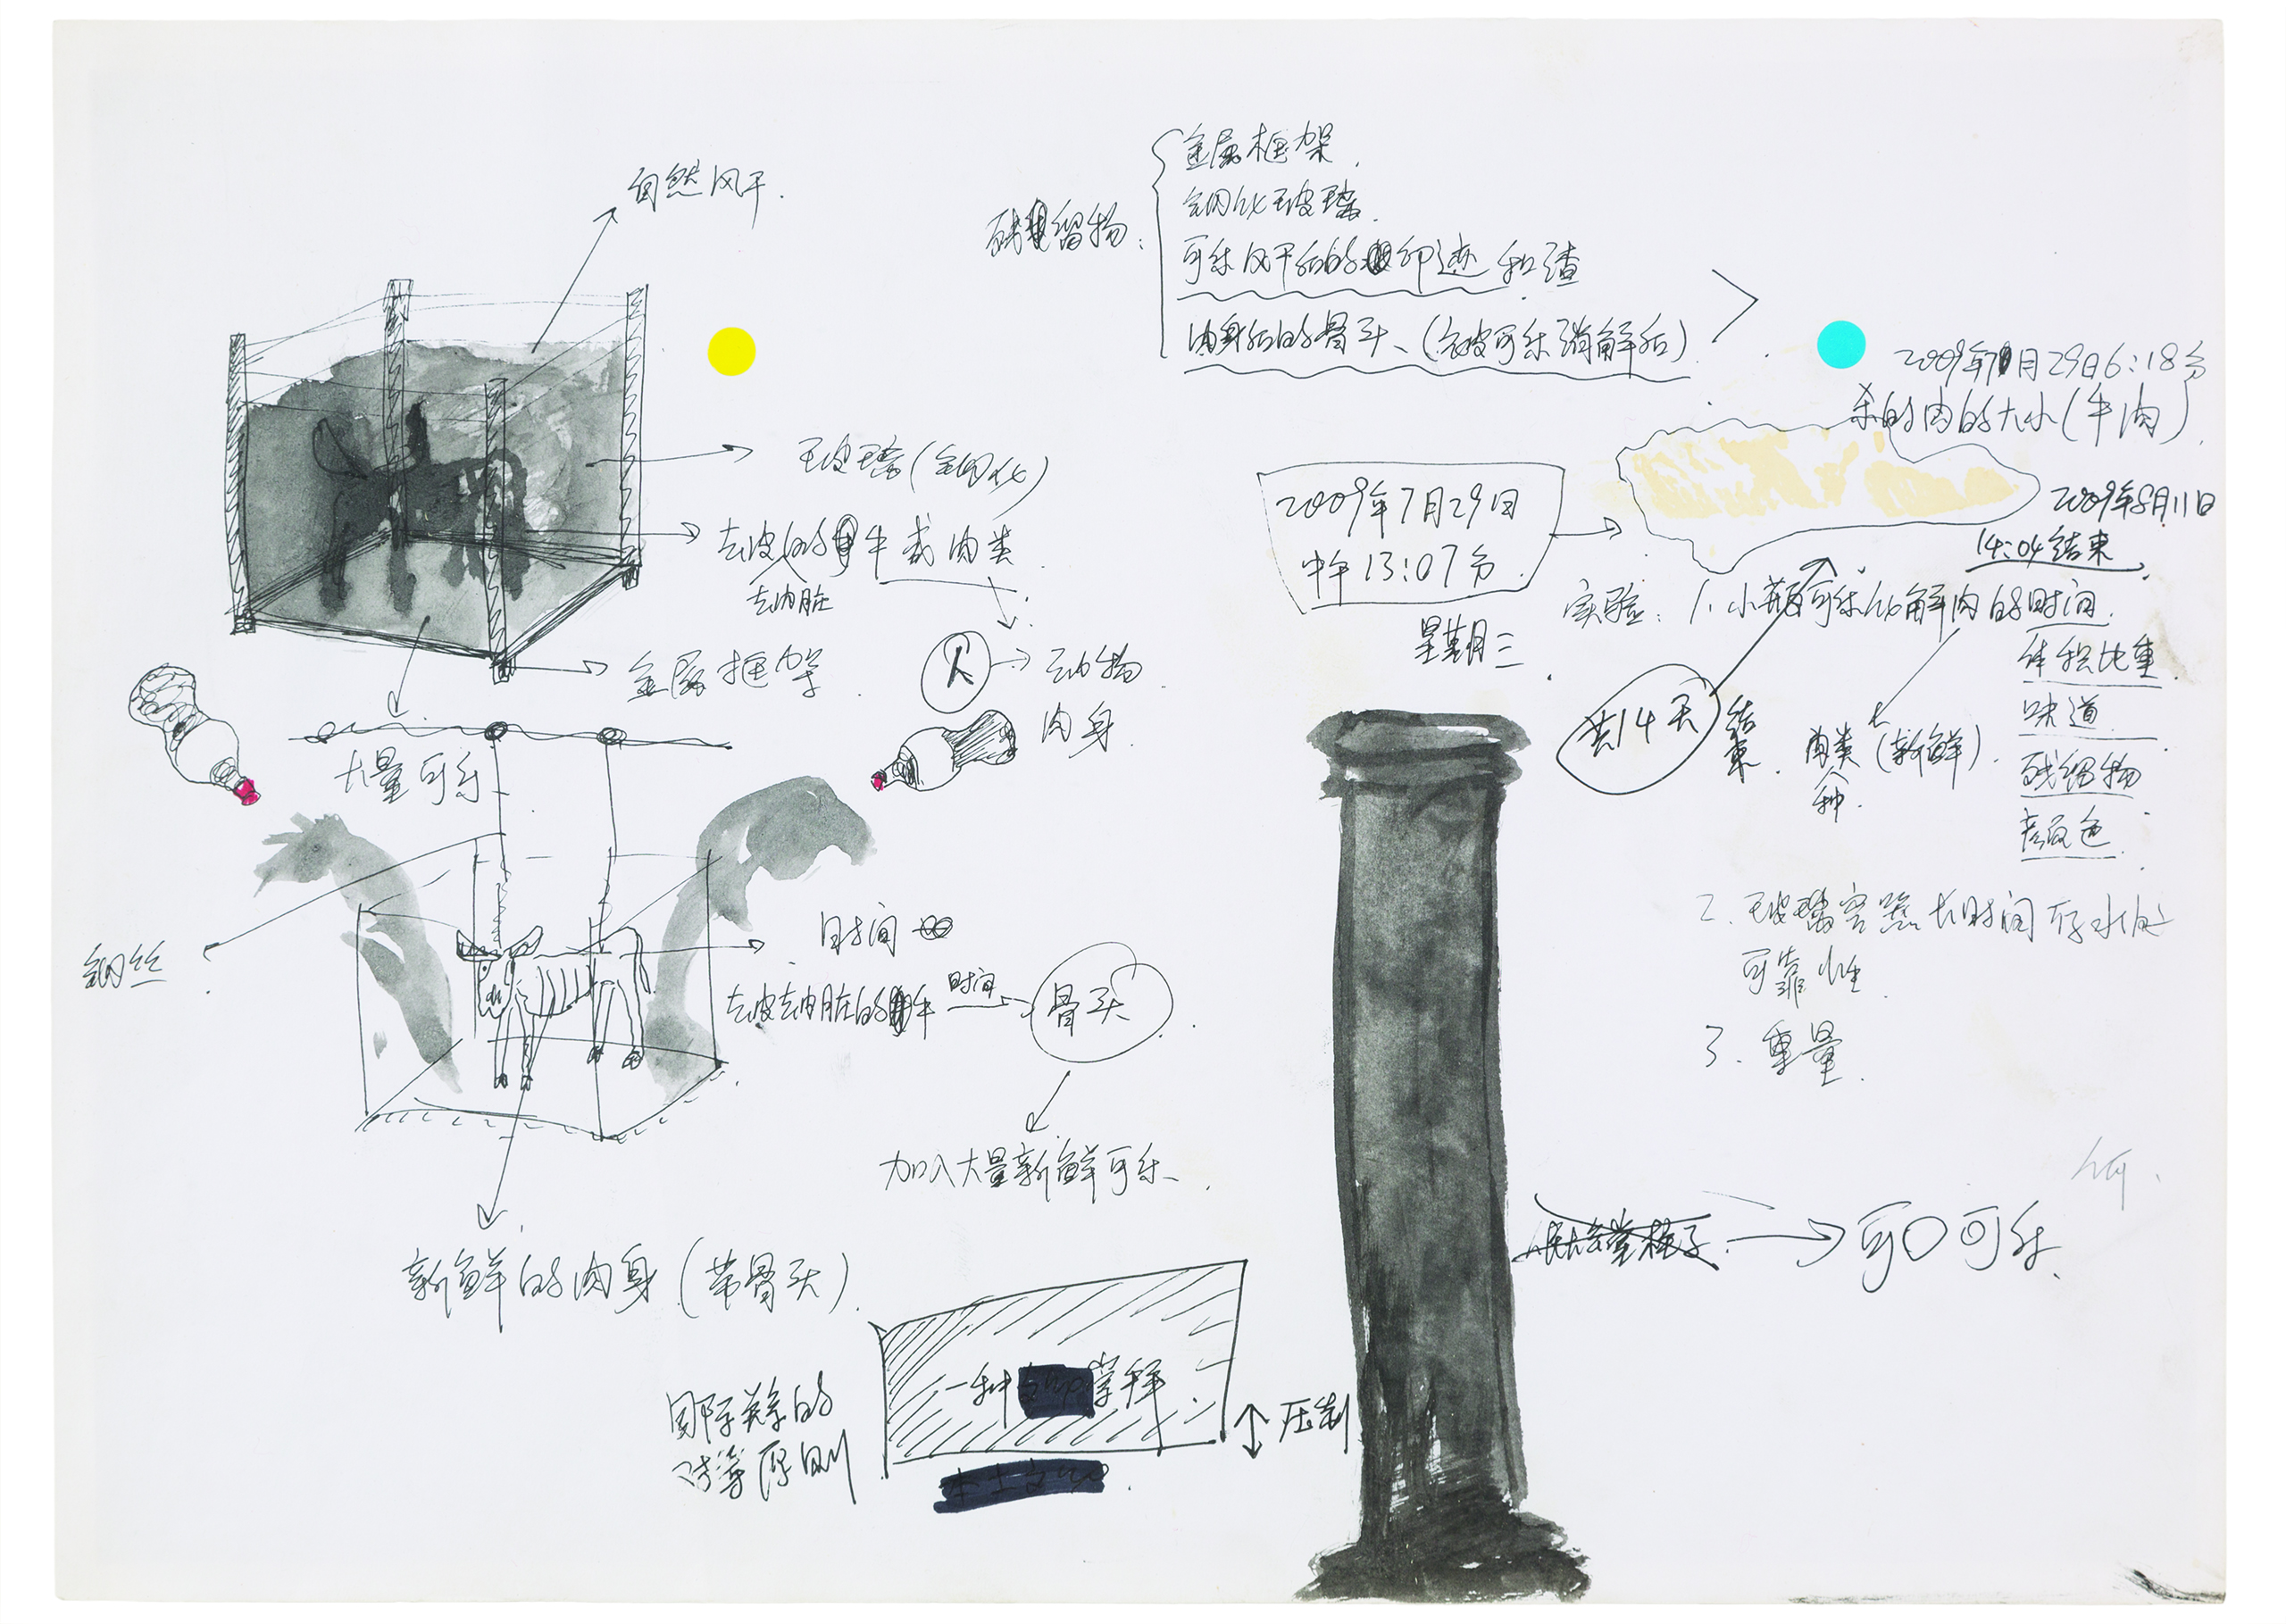 自然风干.
玻璃(钢化)
去皮的牛或肉类
去内脏
金属框架
人
动物
肉身
大量可乐
钢丝
时间
去皮去内脏的牛
时间
骨头
加入大量新鲜可乐.
新鲜的肉身(带骨头).
国际关系的
对等原则
一种
压制
残留物:
金属框架.
钢化玻璃.
可乐风干后的印迹和渣
肉身后的骨头、(被可乐消解后)
2009年7月29日6:18分
买的肉的大小(牛肉).
2009年7月29日
中午13:07分.
星期三
2009年8月11日
14:04结束.
实验: 1. 小瓶可乐化解肉的时间.
体积比重
味道
残留物
颜色
共14天
结束.
肉类(新鲜).
种.
2. 玻璃容器长时间存水的
可靠性
3. 重量
人民大会堂柱子
可口可乐.